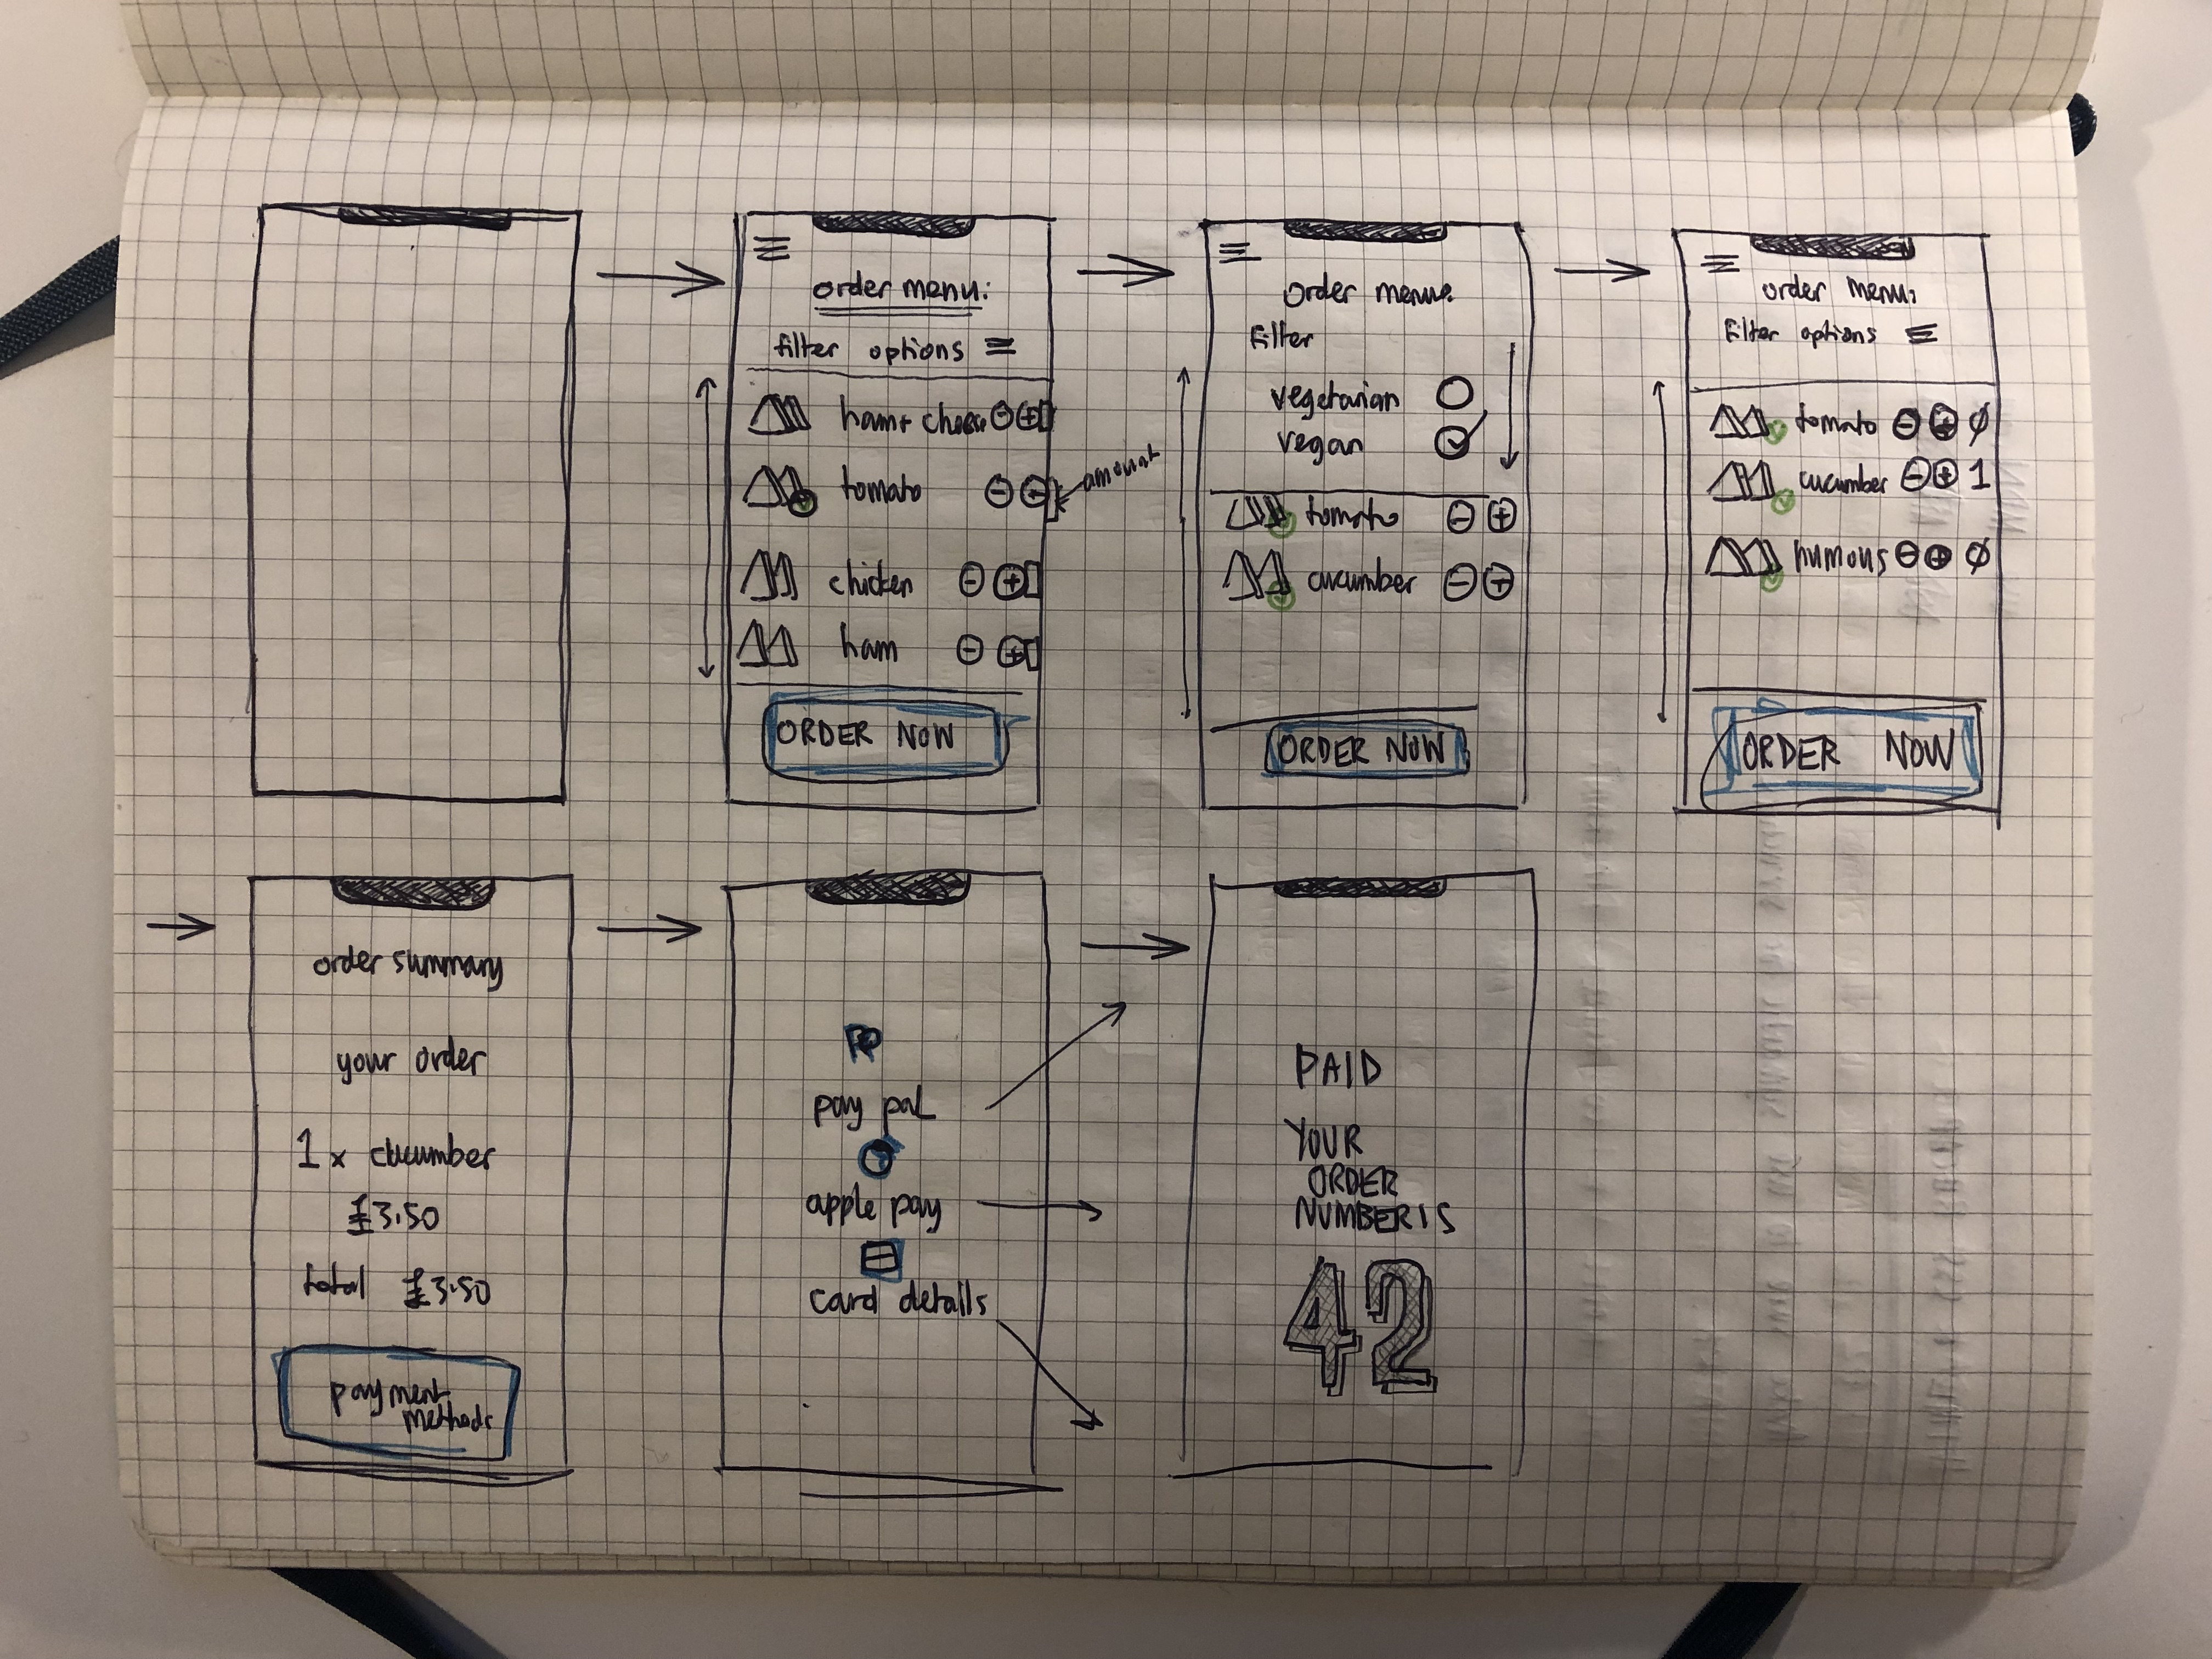 order menu:
filter options
ham + cheese
tomato
amount
chicken
ham
ORDER NOW
Order menu:
Filter
vegetarian
vegan
tomato
cucumber
ORDER NOW
order menu:
Filter options
tomato 0
cucumber 1
humous 0
ORDER NOW
order summary
your order
1 x cucumber
£3.50
total £3.50
payment
methods
PP
pay pal
apple pay
card details
PAID
YOUR
ORDER
NUMBER IS
42